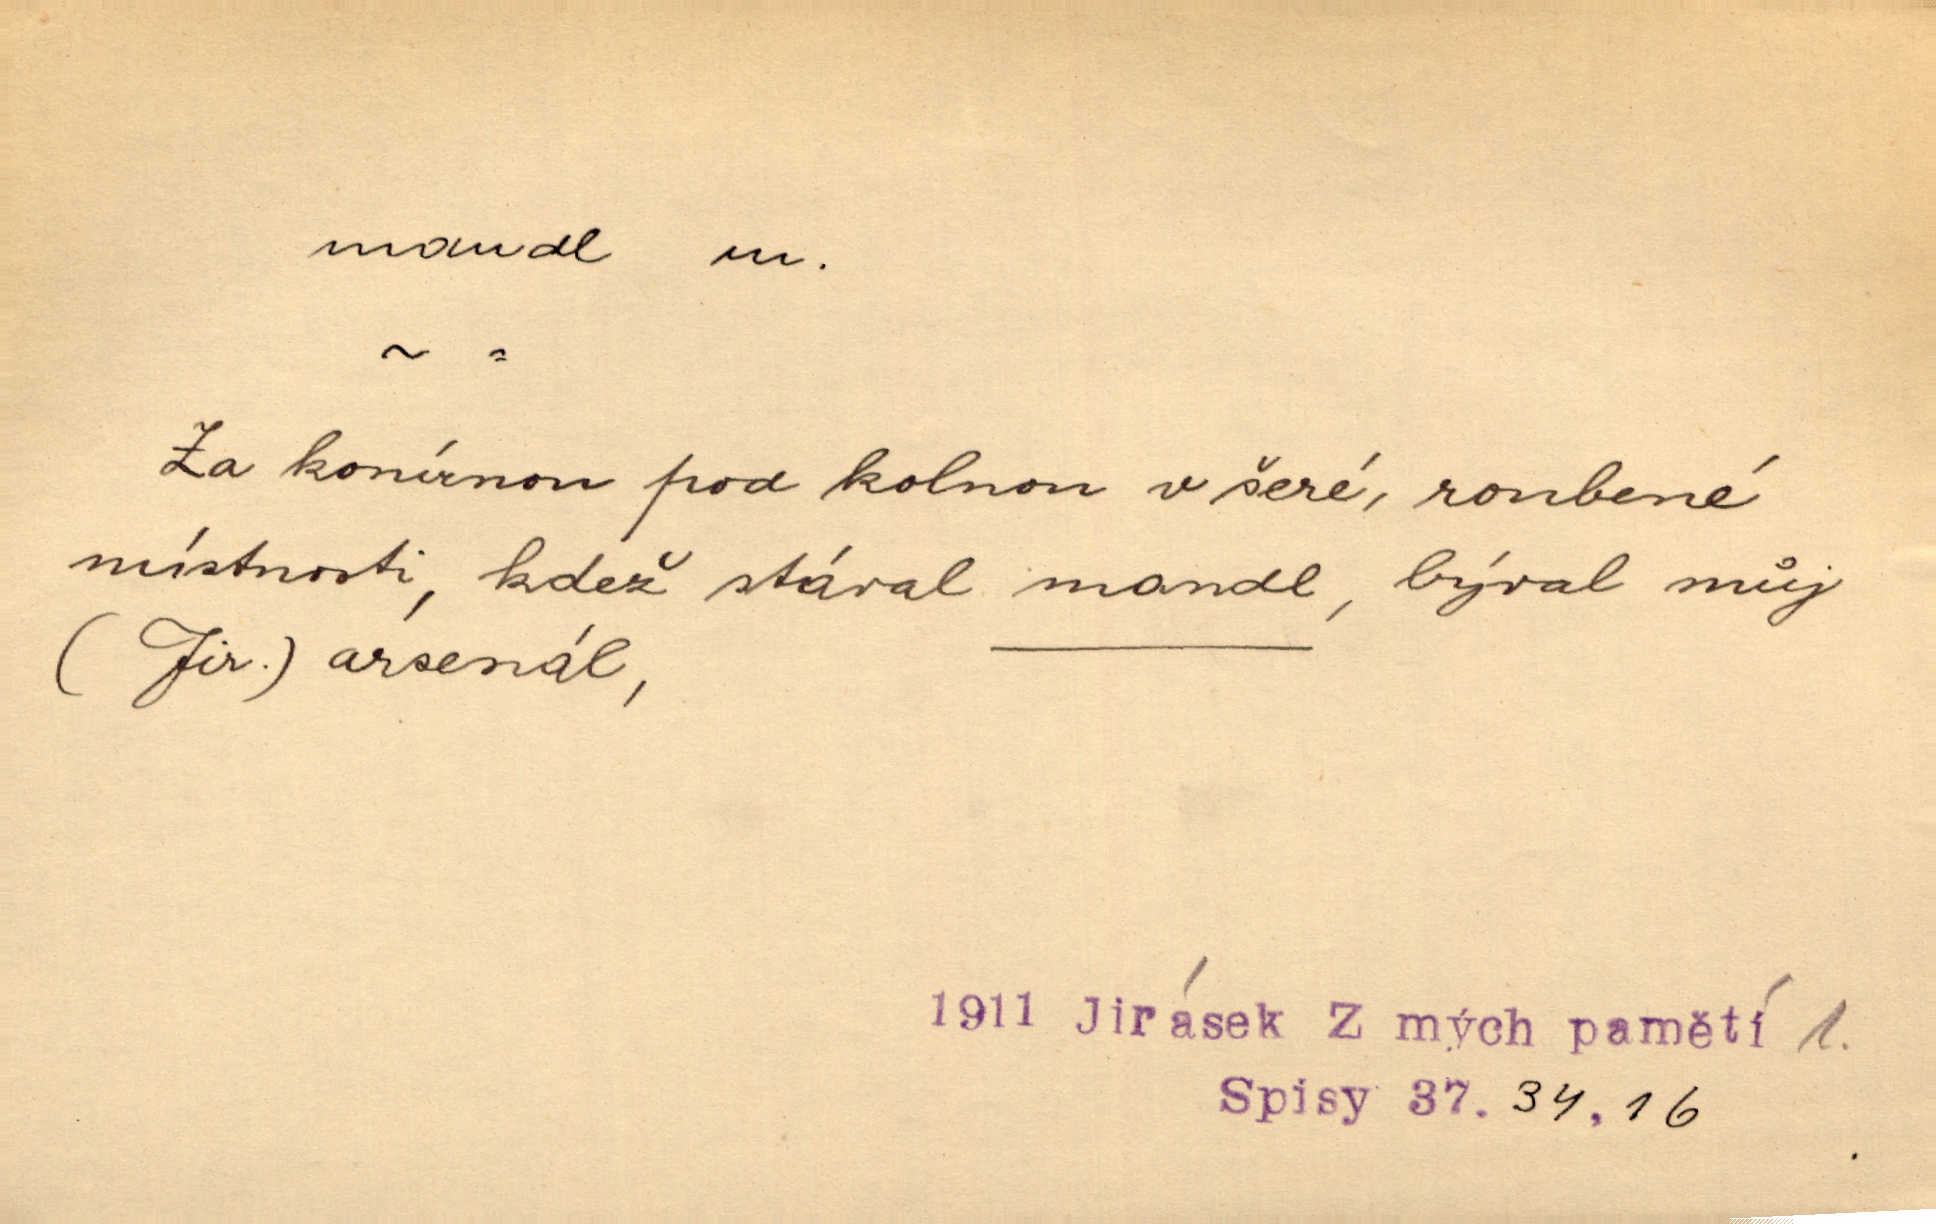 mandl m.
~ =
Za konírnou pod kolnou v šeré, roubené
místnosti, kdež stával mandl, býval můj
(Jir.) arsenál,
1911 Jirásek Z mých pamětí 1.
Spisy 37. 34, 16